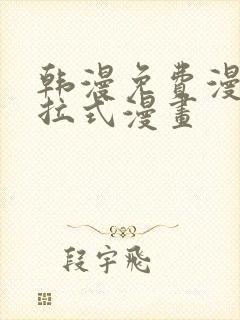 韩漫免費漫
拉式漫畫
段宇飛